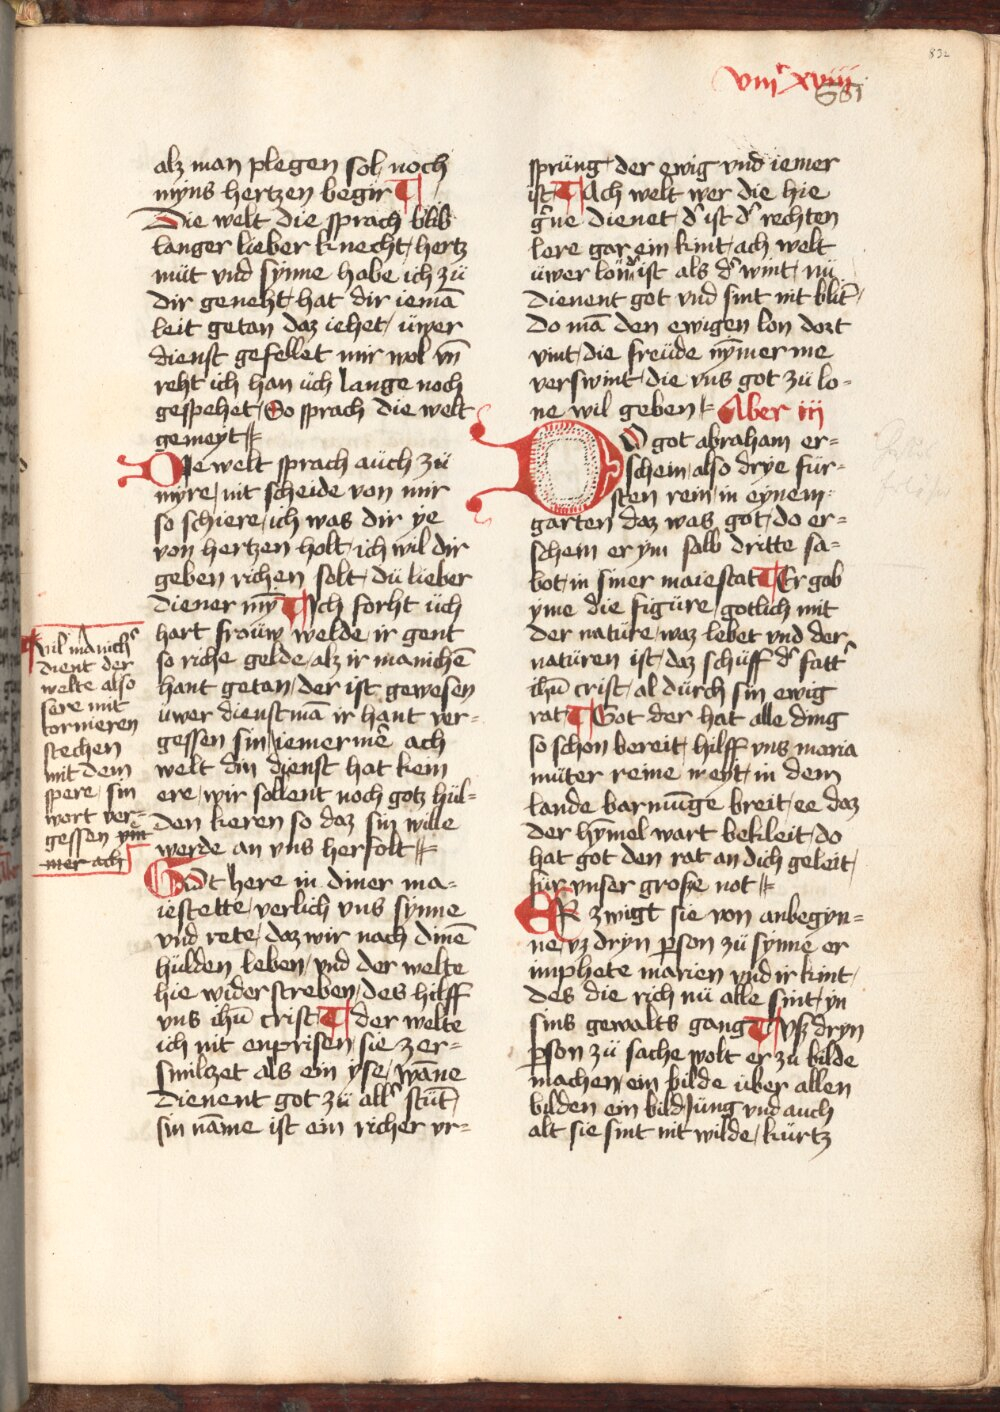 832
viijᶜ xviij
801
alz man plegen sol, noch
myns hertzen begir
Die welt die sprach blib
langer lieber knecht / hertz
müt vnd synne habe ich zü
dir geneht hat dir iemā
leit getan daz iehet / üwer
dienst gefellet mir wol vn̄
reht ich han üch lange noch
gespehet / So sprach die welt
gemeyt
Die welt sprach aüch zü
myre / nit scheide von mir
so schiere / ich was dir ye
von hertzen holt / ich wil dir
geben richen solt / dü lieber
diener my̅ Ich forht üch
hart froüw welde / ir gent
so riche gelde / alz ir manichē
hant getan / der ist gewesen
üwer dienstmā ir hant ver=
gessen sin iemermē ach
welt din dienst hat kein
ere / wir sollent noch gotz hül=
den keren so daz sin wille
werde an vns herfolt
vil manichˀ
dient der
welte also
sere mit
tornieren
stechen
mit dem
spere / sin
wort ver=
gessen ym̅
mer ach
Gott here in diner ma=
iestette / verlich vns synne
vnd rete / daz wir nach dinē
hülden leben / vnd der welte
hie wider streben / des hilff
vns ihū crist der welte
ich nit enprisen / sie zer=
smilczet als ein yse / wāne
Dienent got zü allˀ stūt /
sin nāme ist ein richer vr=
sprüng / der ewig vnd iemer
ist Ach welt wer die hie
gˀne dienet / dˀ ist dˀ rechten
lere gar ein kint / ach welt
üwer lon̄ ist als dˀ wint / nü
dienent got vnd sint nit blīt /
Do mā den ewigen lon dort
vint / die freüde ny̅mer me
verswint / die vns got zü lo=
ne wil geben Aber iij
Do got abraham er=
schein / also drye für=
sten rein / in eynem
garten daz was got / do er=
schein er ym selb dritte sa=
bot / in siner maiestat Er gob
yme die figüre / gotlich mit
der natüre / waz lebet vnd der
natüren ist / daz schüff dˀ fattˀ
ihū crist / al dürch sin ewig
rat Got der hat alle ding
so schon bereit / hilff vns maria
müter reine meyt / in dem
lande barmūge breit / ee daz
der hy̅mel wart bekleit / do
hat got den rat an dich geleit /
für vnser große not
Er zwigt sie von anbegyn=
ne / vz dryn ꝑson zü synne er
imphete marien vnd ir kint /
des die rich nü alle sint / yn
sins gewalts gang vß dryn
ꝑson zü sache wolt er zü bilde
machen / ein bilde über allen
bilden ein bild Jüng vnd auch
alt sie sint nit wilde / kürtz